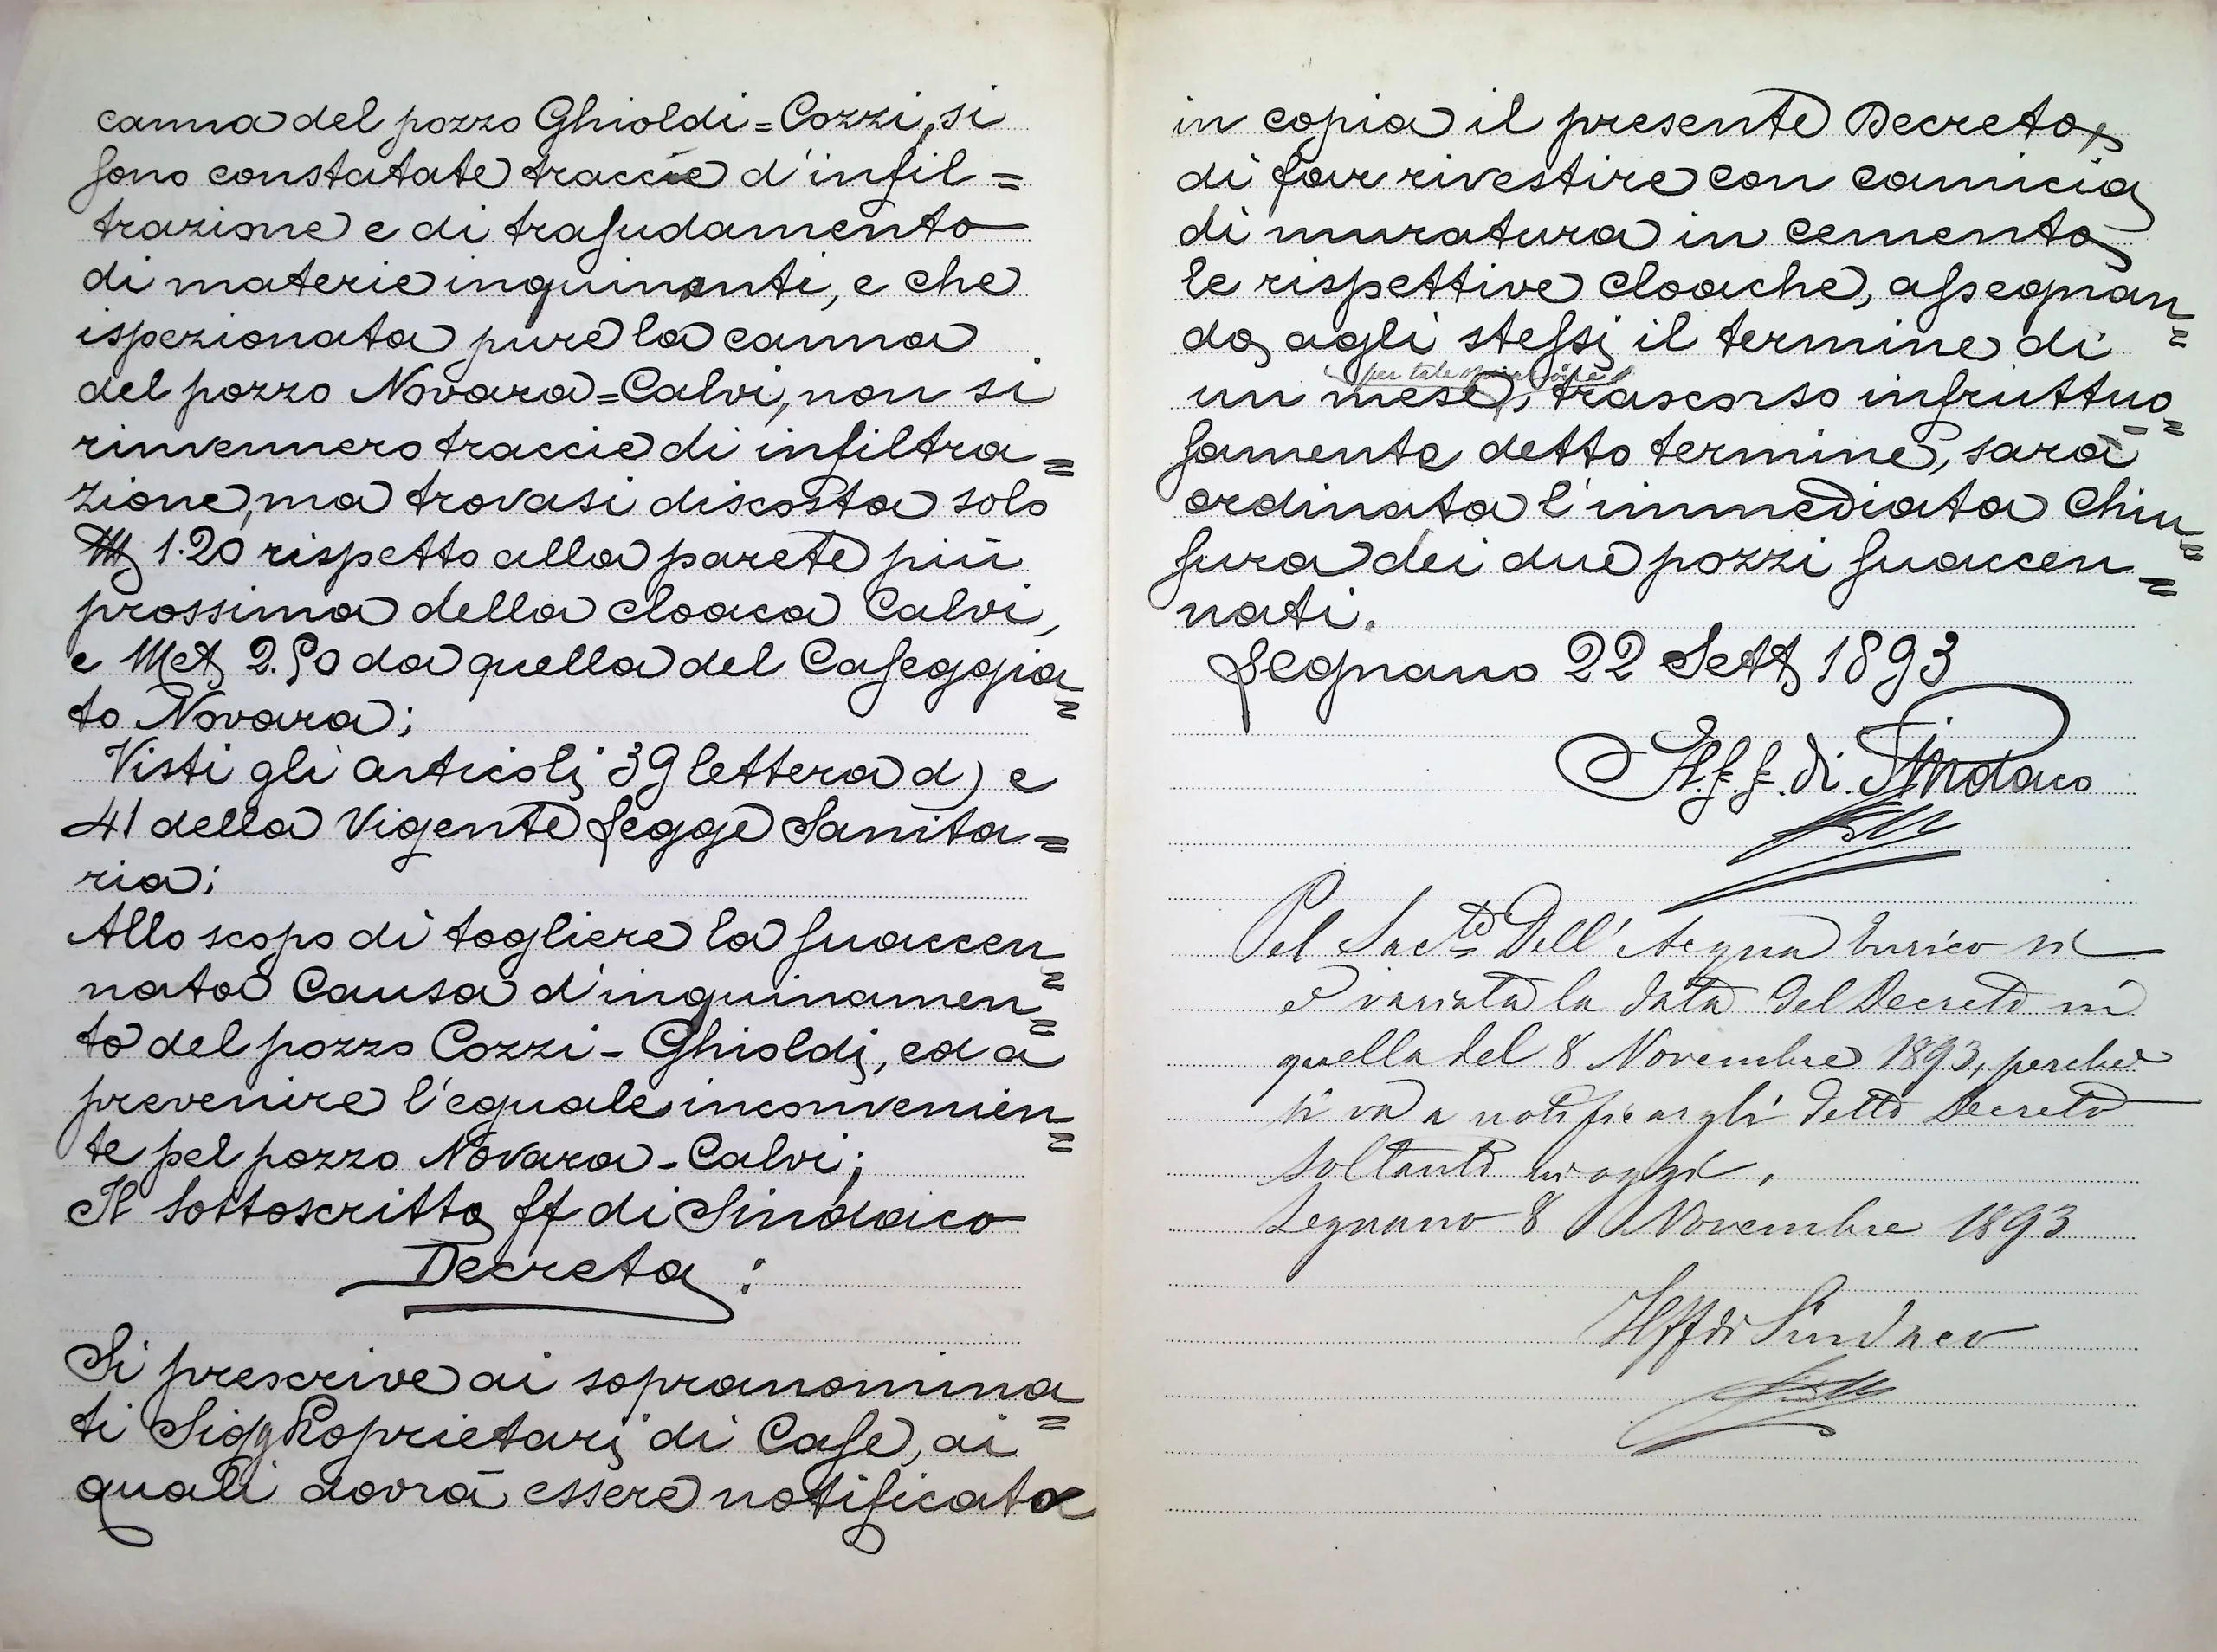 canna del pozzo Ghioldi=Cozzi, si
sono constatate traccie d'infil=
trazione e di trasudamento
di materie inquinanti, e che
ispezionata pure la canna
del pozzo Novara=Calvi, non si
rinvennero traccie di infiltra=
zione, ma trovasi discosta solo
M 1.20 rispetto alla parete più
prossima della cloaca Calvi,
e Met 2.50 da quella del Caseggia=
to Novara;
Visti gli articoli 39 lettera d) e
41 della Vigente Legge Sanita=
ria;
Allo scopo di togliere la suaccen=
nata Causa d'inquinamen=
to del pozzo Cozzi-Ghioldi, ed a
prevenire l'eguale inconvenien=
te pel pozzo Novara-Calvi;
Il Sottoscritto ff di Sindaco
Decreta:
Si prescrive ai sopranomina=
ti Sigg Proprietari di Case, ai
quali dovrà essere notificato
in copia il presente Decreto,
di far rivestire con camicia
di muratura in cemento
le rispettive cloache, assegnan=
do agli stessi il termine di
per tale operazione
un mese, trascorso infruttuo=
samente detto termine, sarà
ordinata l'immediata Chiu=
sura dei due pozzi suaccen=
nati.
Legnano 22 Sett 1893
Il f.f. di Sindaco
Pel Sacte Dell'Acqua Enrico si
è variata la data del Decreto in
quella del 8 Novembre 1893, perchè
si va a notificargli detto Decreto
soltanto in oggi.
Legnano 8 Novembre 1893
Il ff di Sindaco